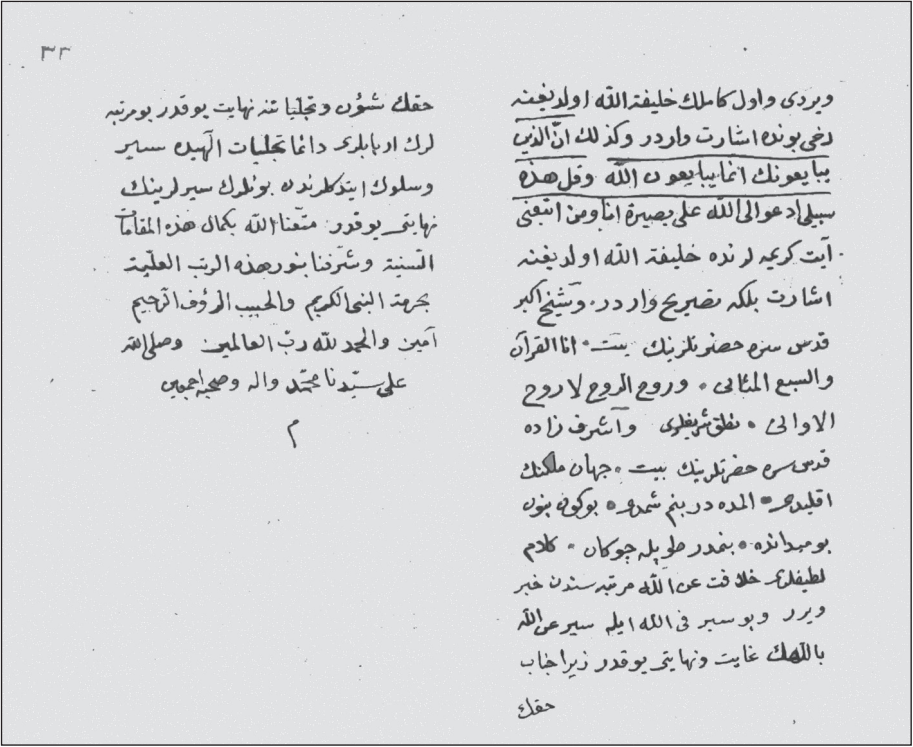 ويردى واول كاملك خليفة الله اولديغنه
دخى بونده اشارت واردر وكذلك انّ الذين
يبايعونك انما يبايعون الله وقل هذه
سبيلى ادعو الى الله على بصيرة انا ومن اتبعنى
آيت كريمه لرنده خليفة الله اولديغنه
اشارت بلكه تصريح واردر. وشيخ اكبر
قدس سره حضرتلرينك بيت. انا القرآن
والسبع المثانى. وروح الروح لا روح
الاوانى. نطق شريفلرى واشرف زاده
قدس سره حضرتلرينك بيت. جهان ملكنك
اقليمى. المده در بنم شمدى. بوكون بنون
بوميدانده. بنمدر طوپله چوكان. كلام
لطيفلرى خلافت عن الله مرتبه سندن خبر
ويرر وبو سير فى الله ايله سير عن الله
باللهك غايت ونهايتى يوقدر زيرا جناب
حقك
٣٣
حقك شئون وتجلياتنه نهايت يوقدر بو مرتبه
لرك اربابلرى دائما تجليات الٓهيده سير
وسلوك ايتدكلرندن بونلرك سيرلرينك
نهايتى يوقدر. متّعنا الله بكمال هذه المقامات
السنية وشرّفنا بنور هذه الرتب العليّة
بحرمة النبى الكريم والحبيب الرؤف الرّحيم
آمين والحمد لله ربّ العالمين وصلى الله
على سيّدنا محمّد واله وصحبه اجمعين
م